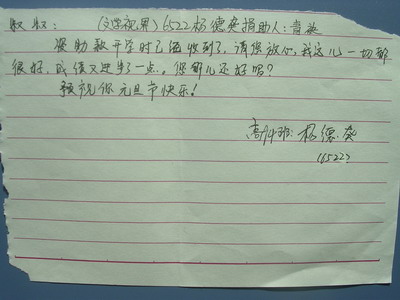 叔叔: (文学视界) 6522杨德葵捐助人:青
资助款开学时已经收到了,请您放心,我这儿一切都
很好,成绩又进步了一点。您那儿还好吗?
预祝你元旦节快乐!
杨德葵